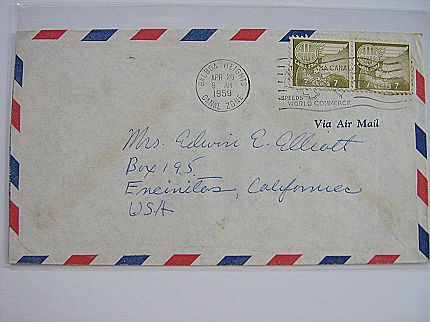 BALBOA HEIGHTS
APR 20
9 AM
1959
CANAL ZONE
CANAL
7
7
SPEEDS
WORLD COMMERCE
Via Air Mail
Mrs. Edwin E. Ellicott
Box 195
Encinitas, California
USA